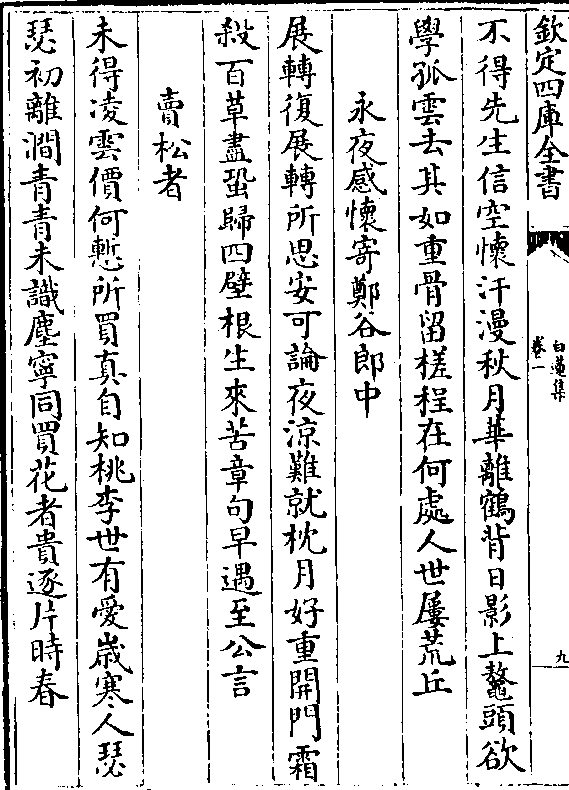 欽定四庫全書
白蓮集
卷一
九
不得先生信空懷汗漫秋月華離鶴背日影上鼇頭欲
學孤雲去其如重骨留槎程在何處人世屢荒丘
永夜感懷寄鄭谷郎中
展轉復展轉所思安可論夜涼難就枕月好重開門霜
殺百草盡蛩歸四壁根生來苦章句早遇至公言
賣松者
未得凌雲價何慙所買真自知桃李世有愛歲寒人瑟
瑟初離澗青青未識塵寧同買花者貴逐片時春